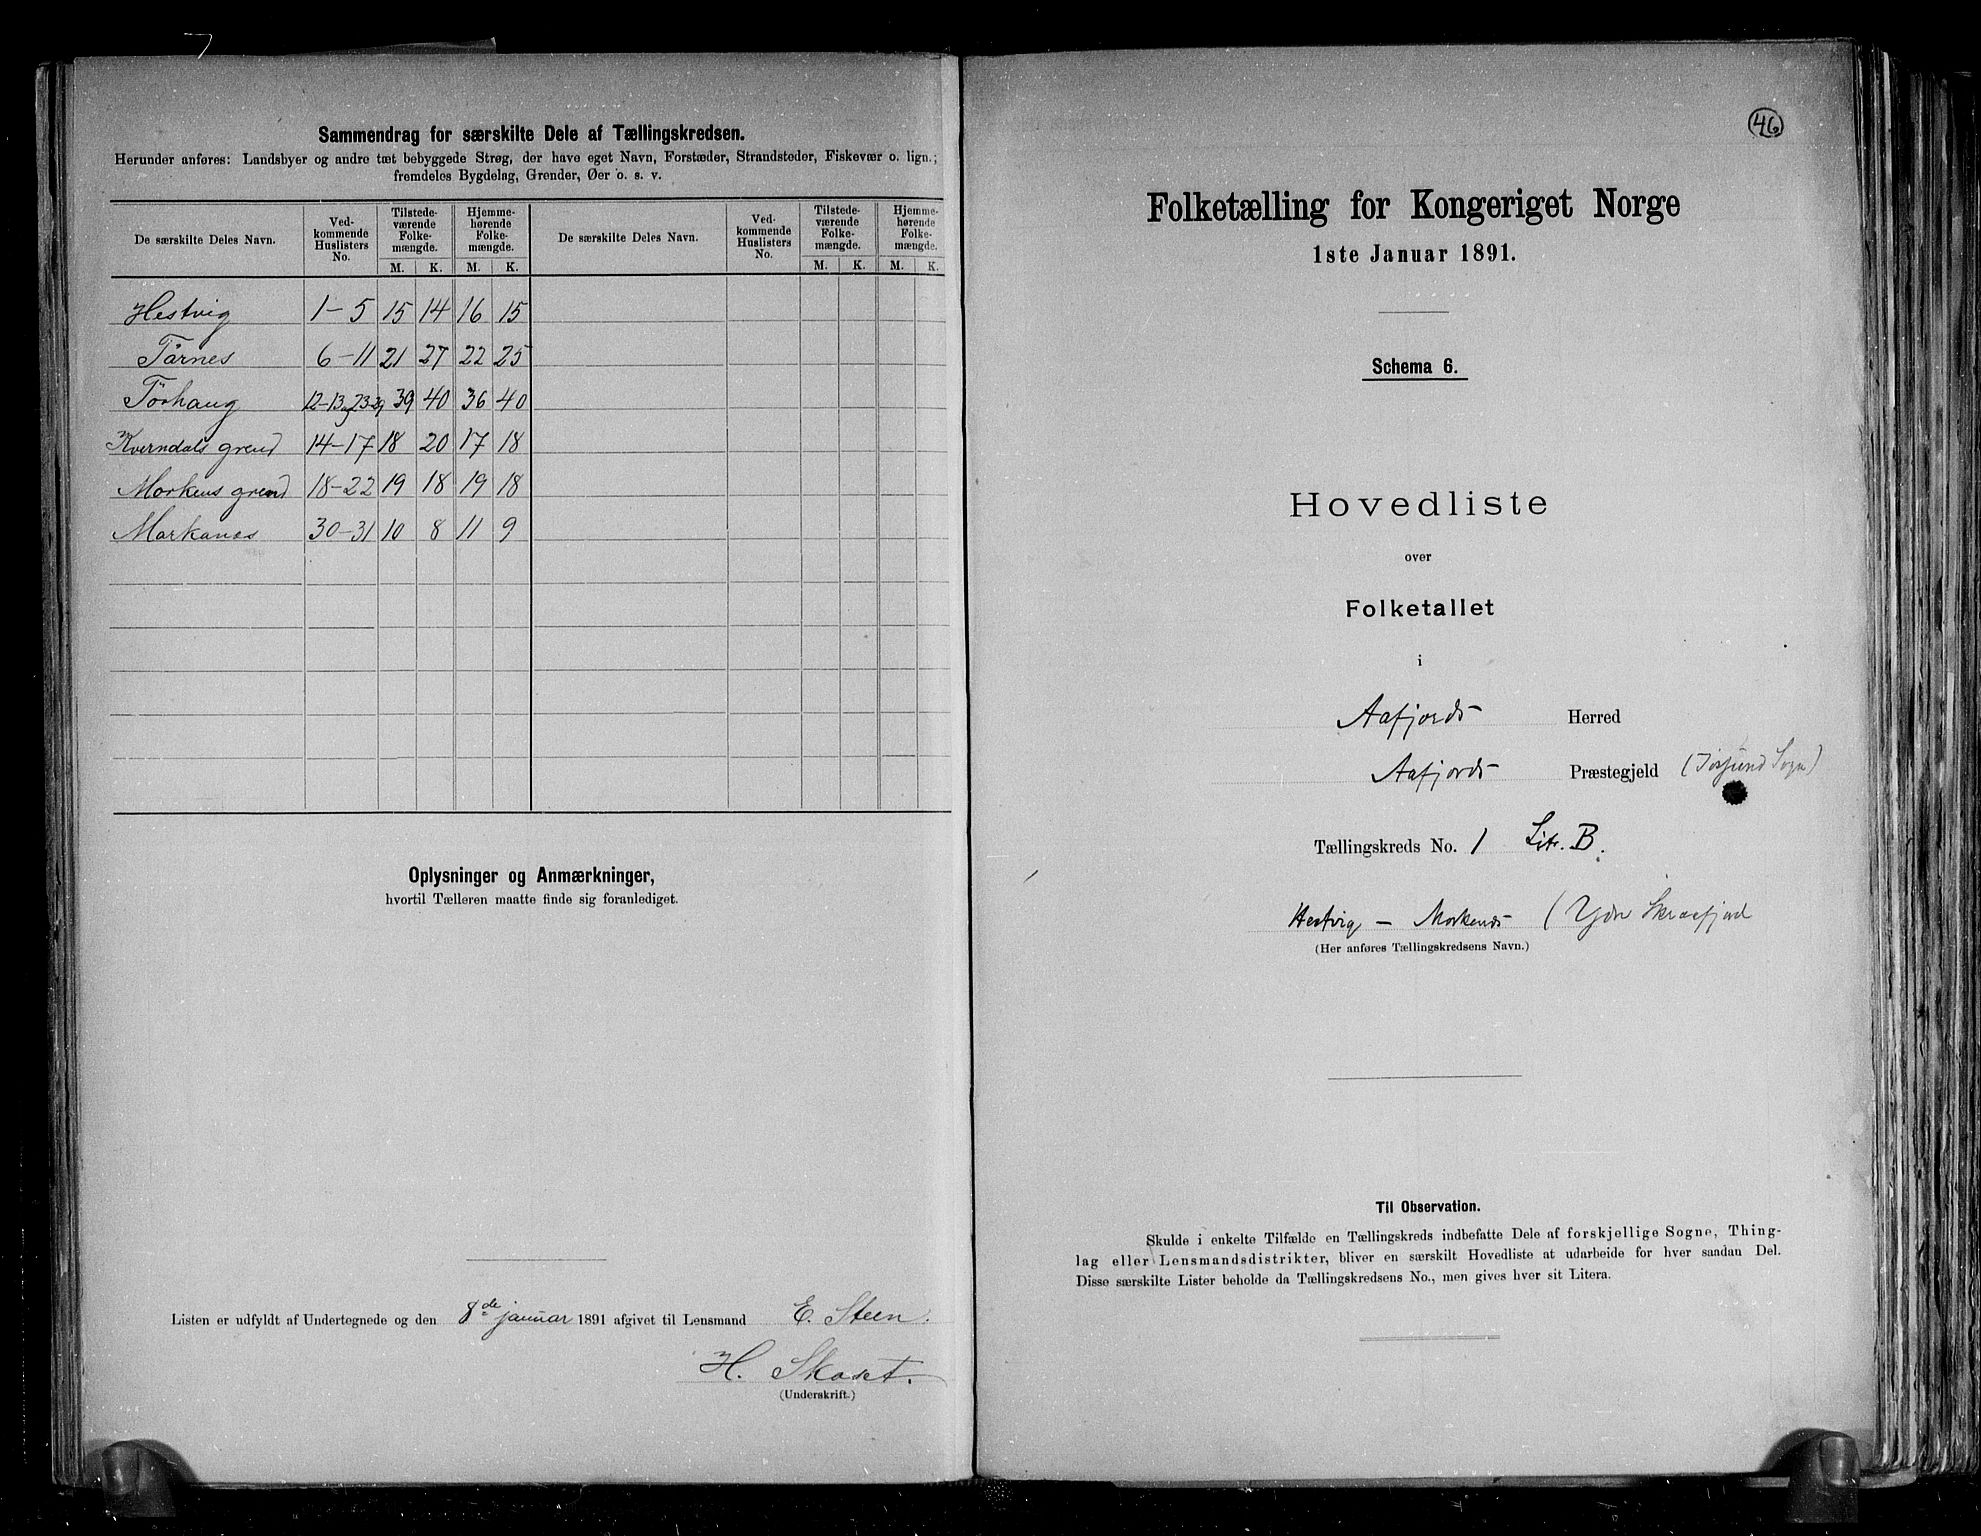 Sammendrag for særskilte Dele af Tællingskredsen.
Herunder anføres: Landsbyer og andre tæt bebyggede Strøg, der have eget Navn, Forstæder, Strandsteder, Fiskevær o. lign.;
fremdeles Bygdelag, Grender, Øer o. s. v.
De særskilte Deles Navn. Ved-kommende Huslisters No. Tilstede-værende Folke-mængde. Hjemme-hørende Folke-mængde. De særskilte Deles Navn. Ved-kommende Huslisters No. Tilstede-værende Folke-mængde. Hjemme-hørende Folke-mængde.
M. K. M. K. M. K. M. K.
Hestvig 1-5 15 14 16 15
Tårnes 6-11 21 27 22 25
Tørhaug 12-13 og 23-29 39 40 36 40
Kverndals grend 14-17 18 20 17 18
Morkens grend 18-22 19 18 19 18
Markanes 30-31 10 8 11 9
Oplysninger og Anmærkninger,
hvortil Tælleren maatte finde sig foranlediget.
Listen er udfyldt af Undertegnede og den 8de januar 1891 afgivet til Lensmand E. Steen.
H. Skaset.
(Underskrift.)
46
Folketælling for Kongeriget Norge
1ste Januar 1891.
Schema 6.
Hovedliste
over
Folketallet
i
Aafjords Herred
Aafjords Præstegjeld (Jøssund Sogn)
Tællingskreds No. 1 Litr. B.
Hestvig - Morkends (Ydre Skraafjord
(Her anføres Tællingskredsens Navn.)
Til Observation.
Skulde i enkelte Tilfælde en Tællingskreds indbefatte Dele af forskjellige Sogne, Thing-
lag eller Lensmandsdistrikter, bliver en særskilt Hovedliste at udarbeide for hver saadan Del.
Disse særskilte Lister beholde da Tællingskredsens No., men gives hver sit Litera.